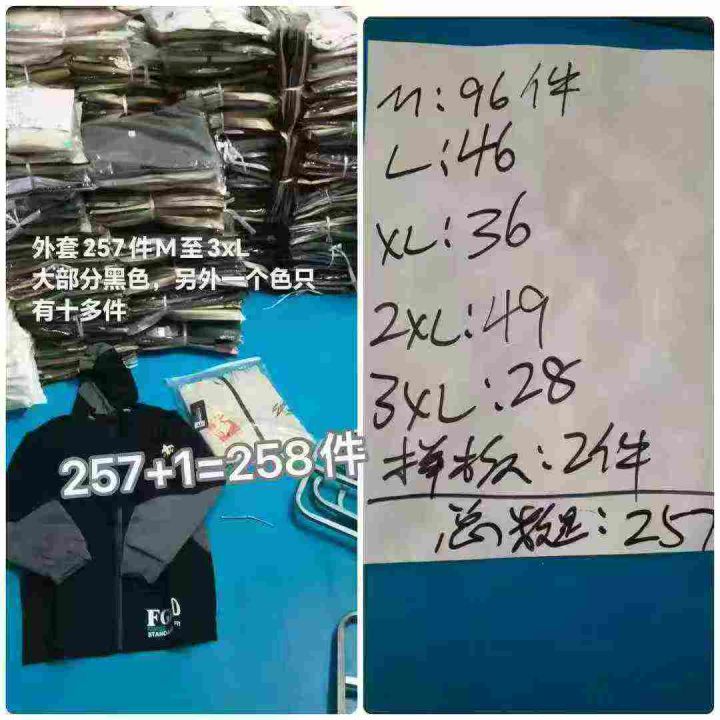 外套257件M至3xL
大部分黑色，另外一个色只
有十多件
257+1=258件
M:96件
L:46
XL:36
2XL:49
3XL:28
样板:2件
总数:257